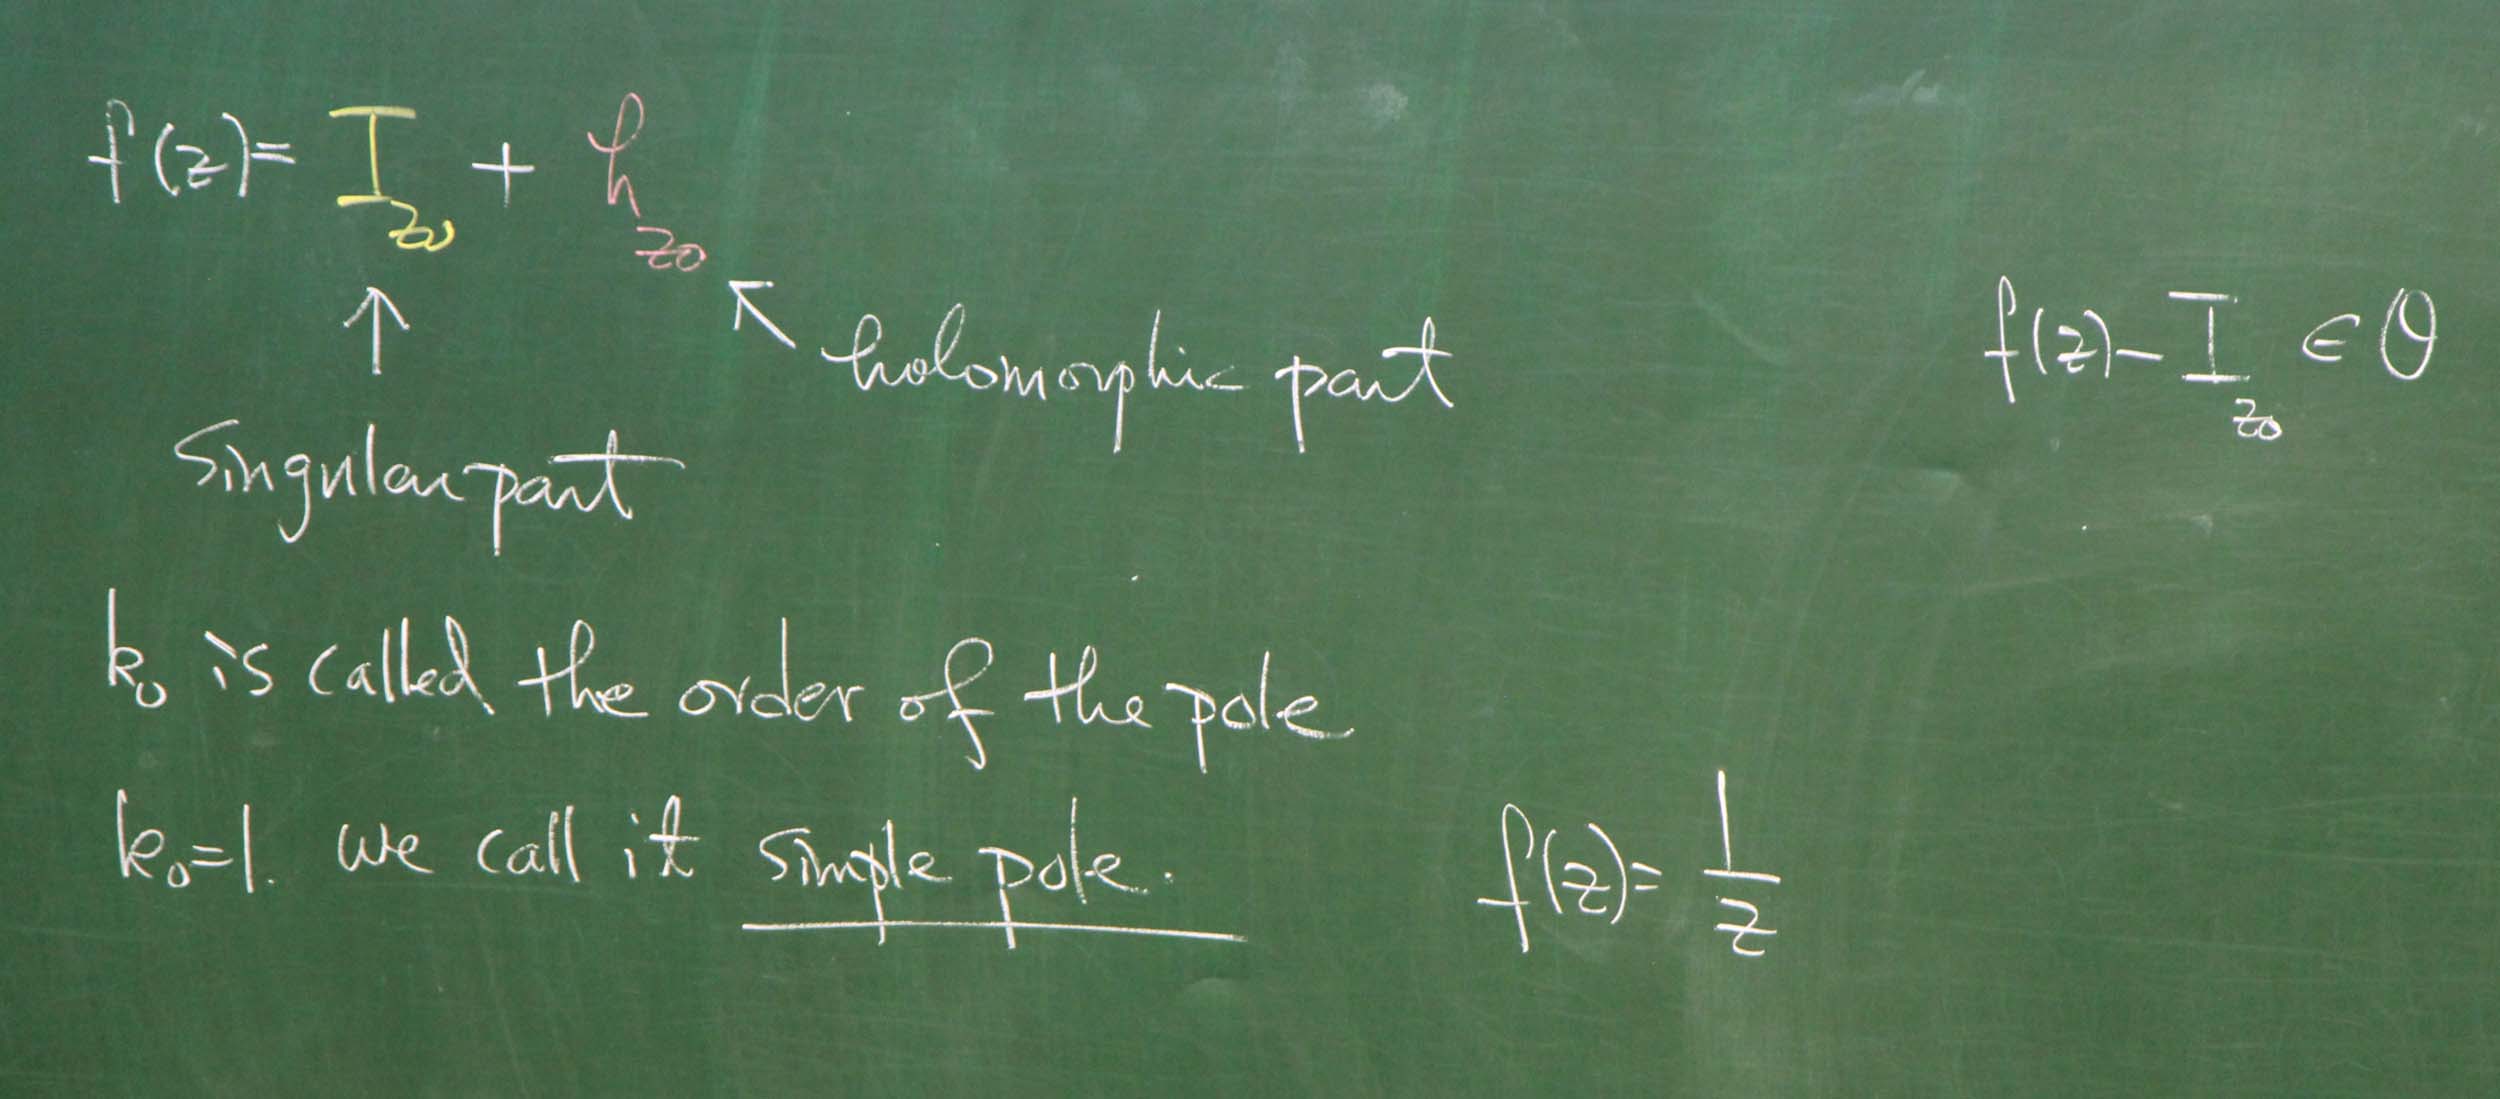 f(z) = I_{z_0} + h_{z_0}
↑ ↖ holomorphic part
f(z) - I_{z_0} ∈ O
Singular part
k_0 is called the order of the pole
k_0=1. we call it simple pole.
f(z) = 1/z